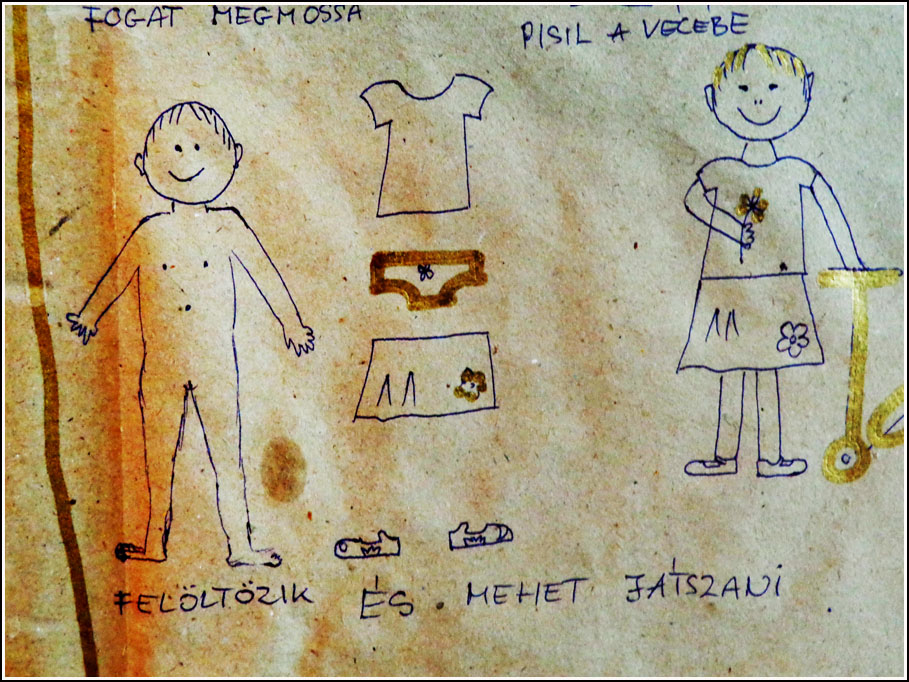 FOGAT MEGMOSSA
PISIL A VECÉBE
FELÖLTÖZIK ÉS MEHET JÁTSZANI